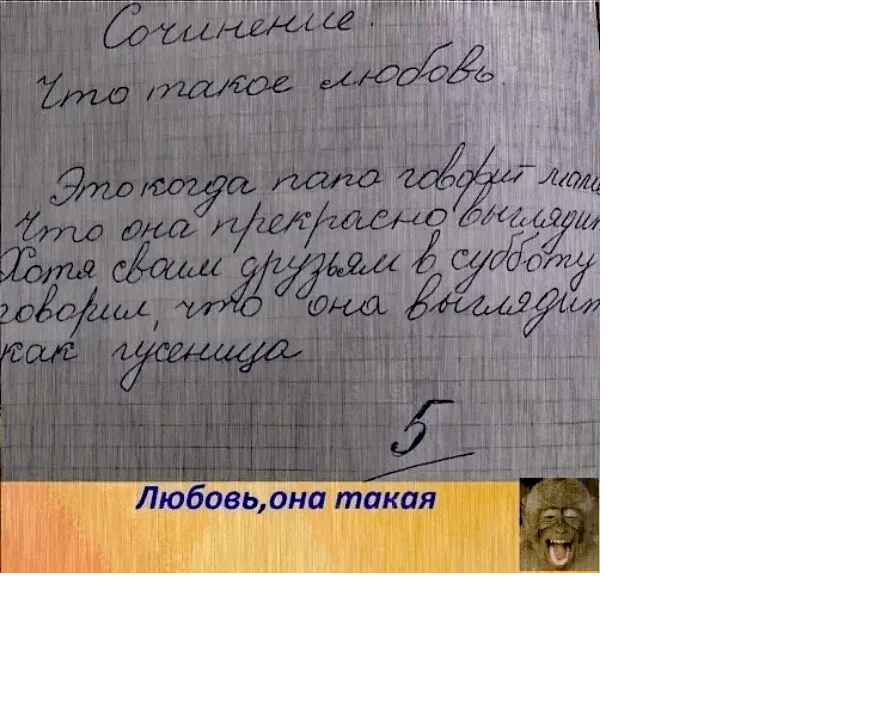 Сочинение.
Что такое любовь.
Это когда папа говорит маме
Что она прекрасно выглядит
Хотя своим друзьям в субботу
говорил, что она выглядит
как гусеница
5
Любовь,она такая